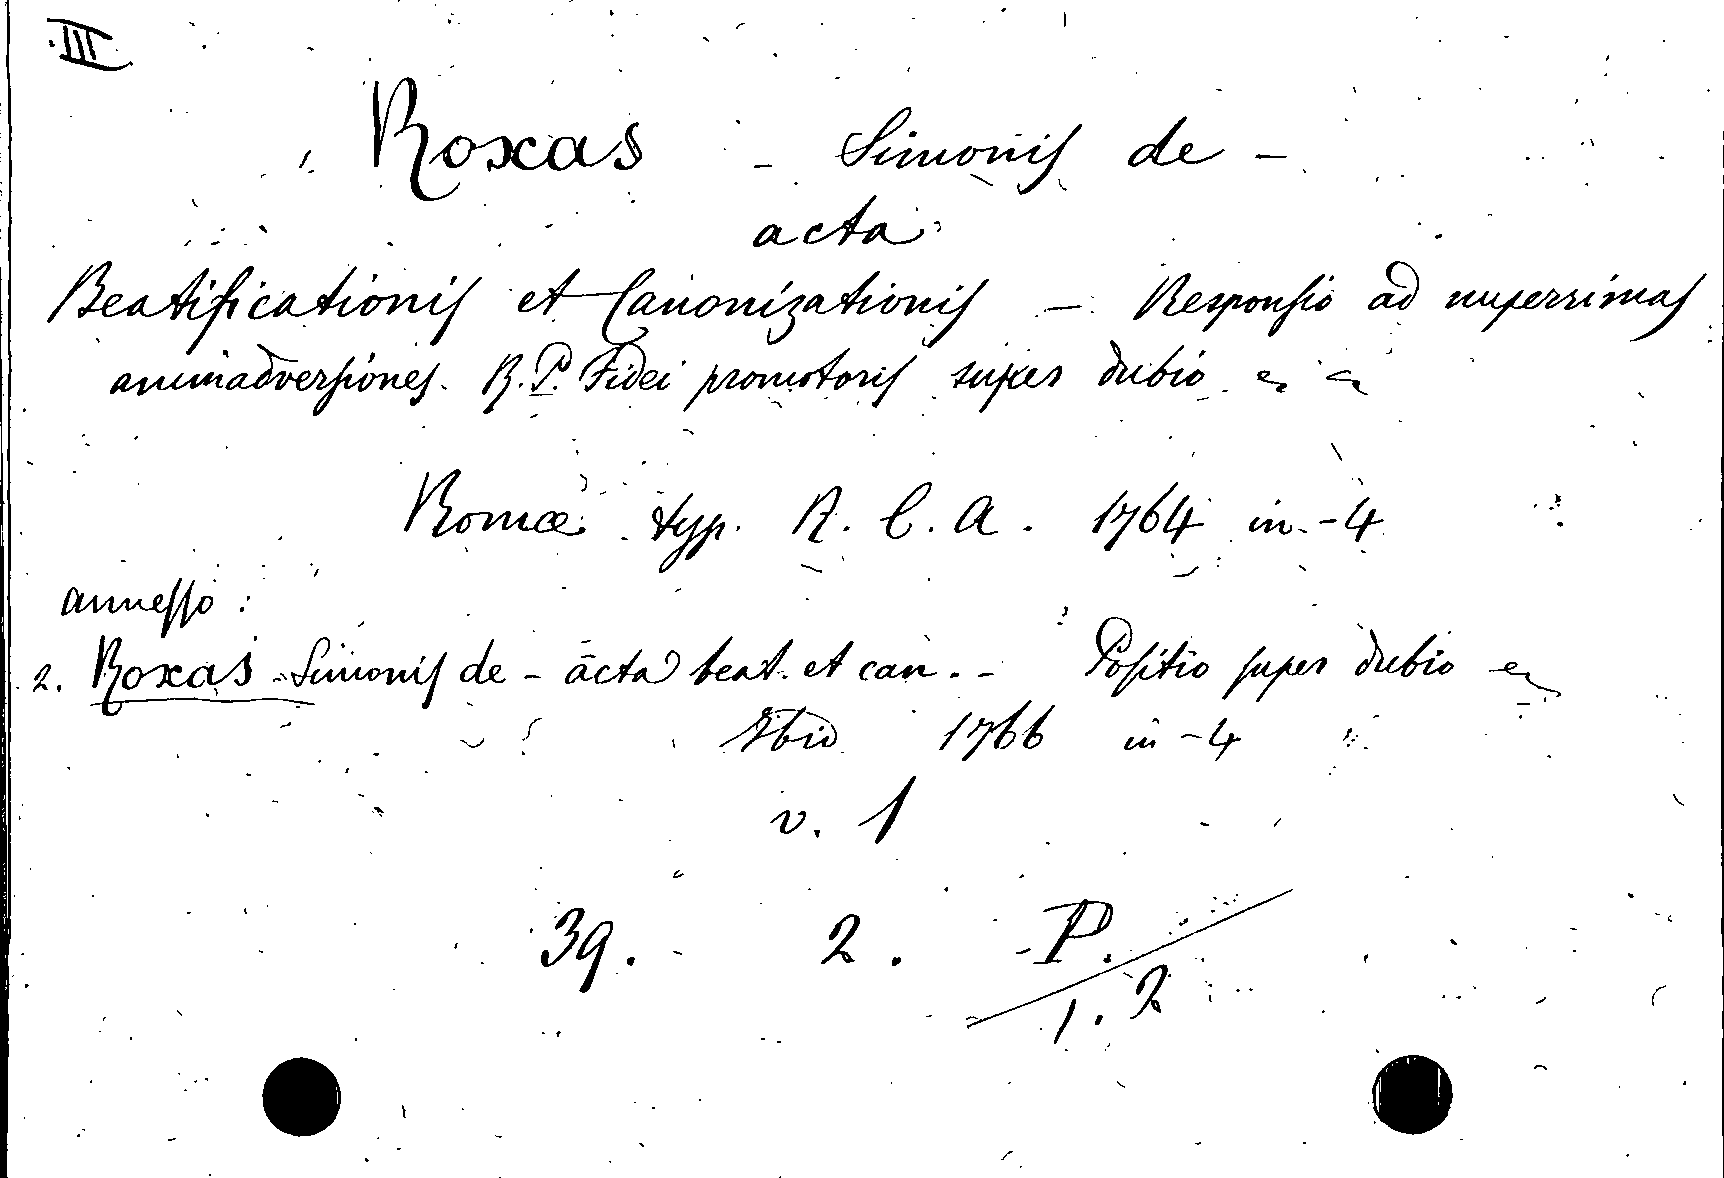 III
Roxas - Simonis de -
acta
Beatificationis et Canonizationis - Responsio ad nuperrimas
animadversiones R. P. Fidei promotoris super dubio
Romæ typ. R. C. A. 1764 in-4
annesso:
2. Roxas - Simonis de - acta beat. et can. - Positio super dubio
Ibid 1766 in-4
v. 1
39. 2. P.
1. 2